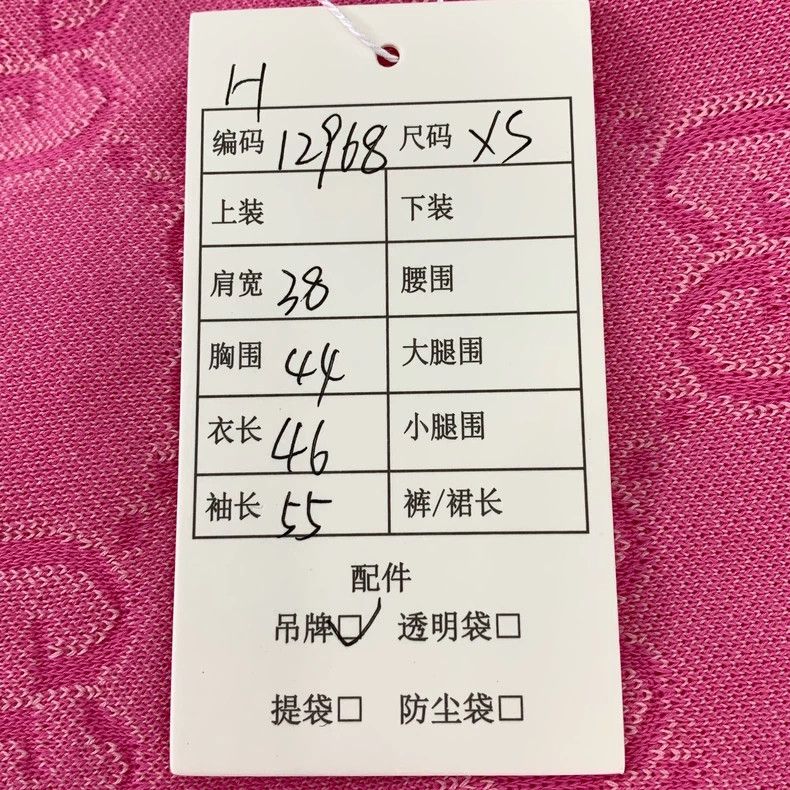 H
编码 12968 尺码 XS
上装 下装
肩宽 38 腰围
胸围 44 大腿围
衣长 46 小腿围
袖长 55 裤/裙长
配件
吊牌☑ 透明袋□
提袋□ 防尘袋□